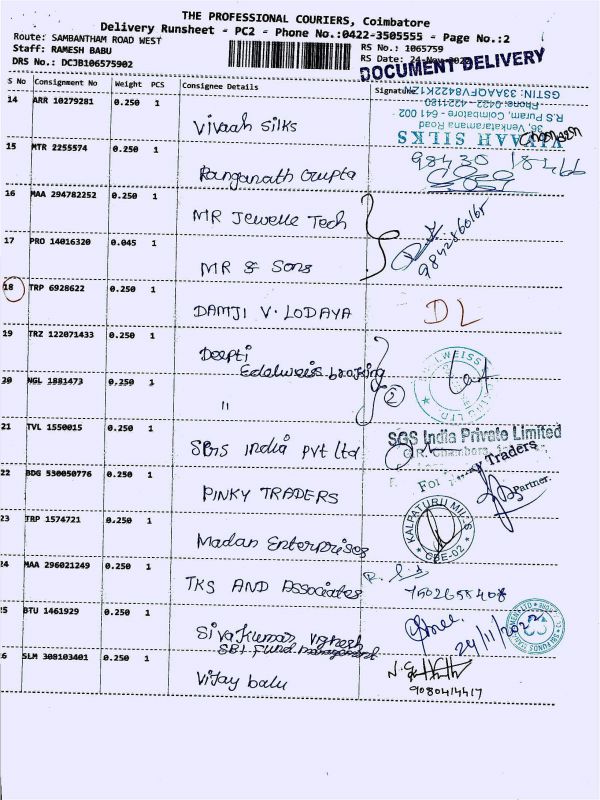 THE PROFESSIONAL COURIERS, Coimbatore
Delivery Runsheet - PC2 - Phone No.:0422-3505555 - Page No.:2
Route: SAMBANTHAM ROAD WEST
Staff: RAMESH BABU
DRS No.: DCJB106575902
RS No.: 1065759
RS Date: 24-Nov-
DOCUMENT DELIVERY
S No Consignment No Weight PCS Consignee Details Signature
14 ARR 10279281 0.250 1 Vivaah Silks
VIVAAH SILKS
36, Venkataramana Road
R.S Puram, Coimbatore - 641 002
Phone: 0422 - 4221180
GSTIN: 33AAQFV8422K1ZN
15 MTR 2255574 0.250 1 Ranganath Gupta 98430 18466
16 MAA 294782252 0.250 1 MR Jewelle Tech
17 PRO 14016320 0.045 1 MR & Sons 9842860165
18 TRP 6928622 0.250 1 DAMJI V. LODAYA DL
19 TRZ 122071433 0.250 1 Deepti
Edelweiss broking
20 NGL 1881473 0.250 1 " 2
21 TVL 1550015 0.250 1 SGS India Pvt Ltd SGS India Private Limited
22 BDG 530050776 0.250 1 PINKY TRADERS For Traders
Partner.
23 TRP 1574721 0.250 1 Madan Enterprises KALPATURU MILLS * CBE-02 *
24 MAA 296021249 0.250 1 TKS AND Associates 7502658408
25 BTU 1461929 0.250 1 Sivakumar Vignesh
SBI Fund management 24/11/2022
26 SLM 308103401 0.250 1 Vijay balu 9080414417